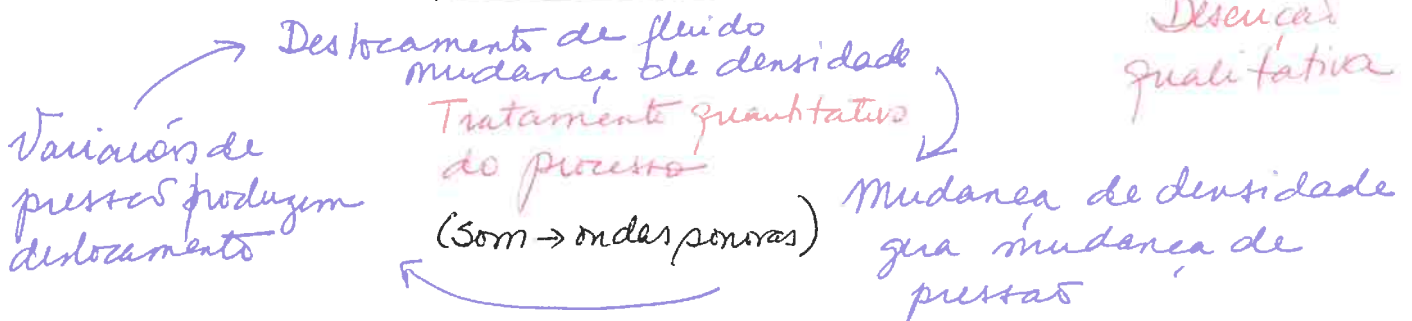 Deslocamento de fluido
mudança de densidade
Discução
qualitativa
Tratamento quantitativo
do processo
Variações de
pressão produzem
deslocamento
(Som → ondas sonoras)
Mudança de densidade
gera mudança de
pressão